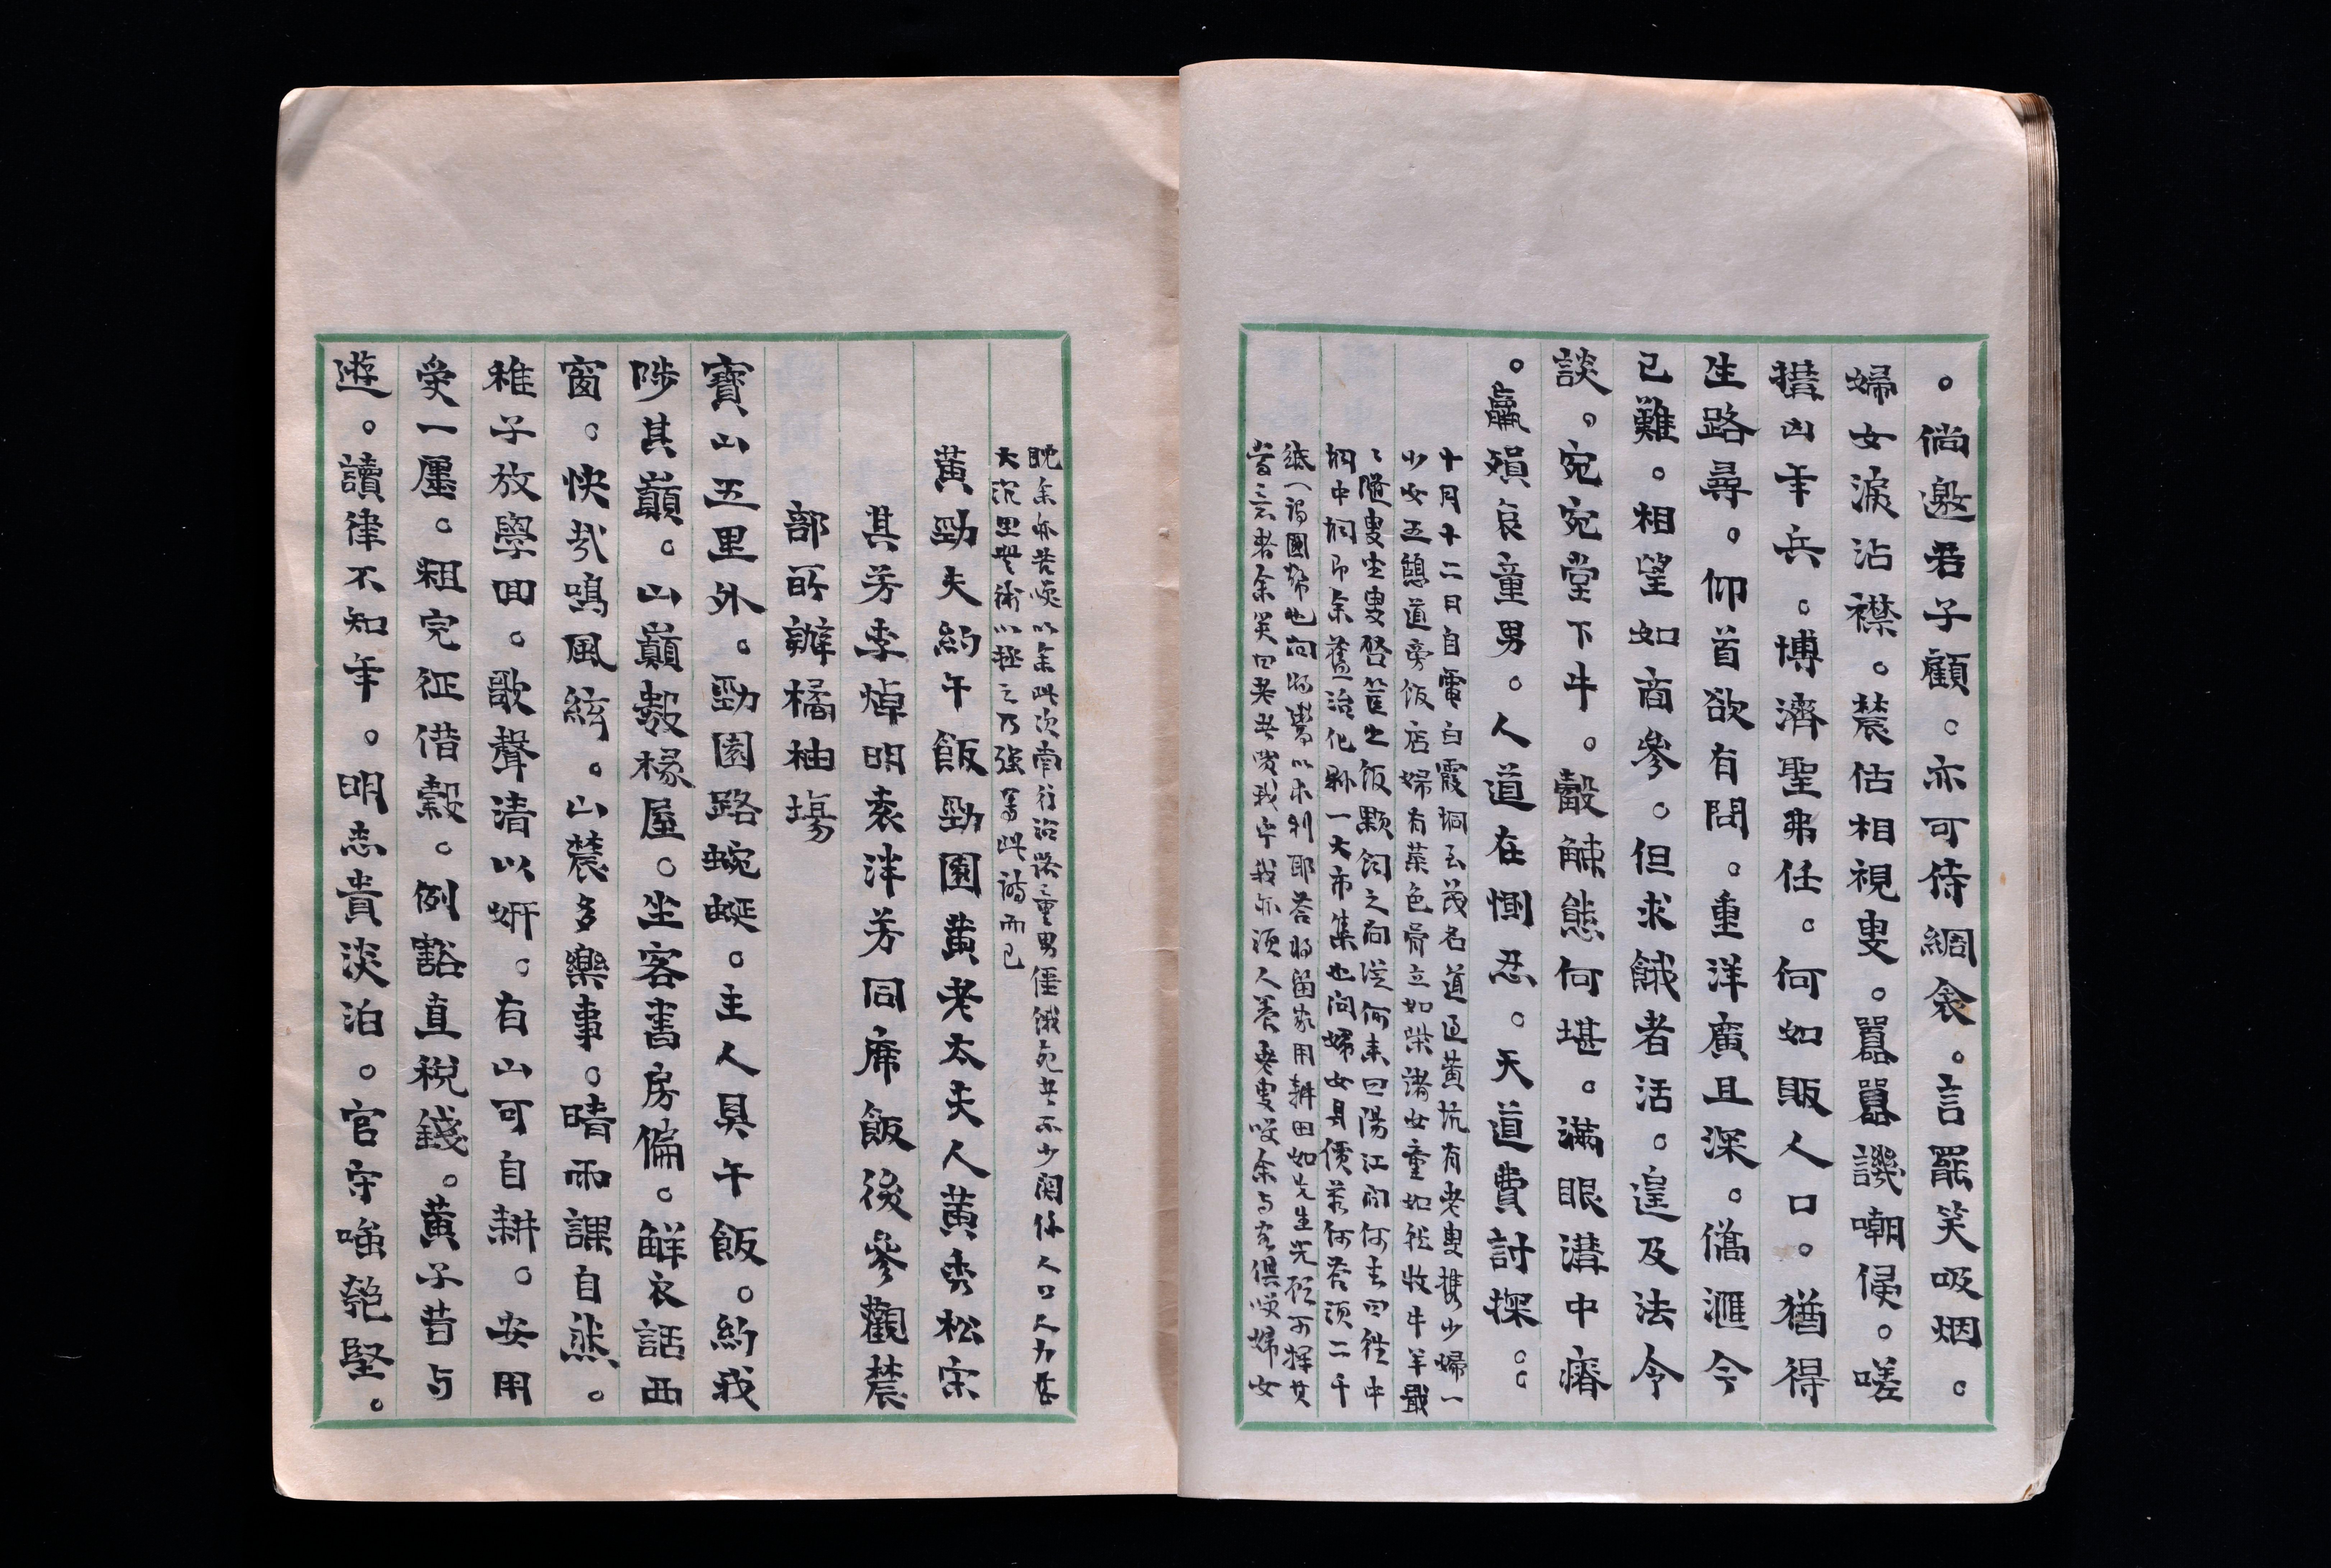 。倘邀君子顧。亦可侍綢衾。言罷笑吸烟。
婦女淚沾襟。農估相視叟。囂囂譏嘲侵。嗟
搆凶年兵。博濟聖弗任。何如販人口。猶得
生路尋。仰首欲有問。重洋廣且深。僑滙今
已難。相望如商參。但求餓者活。遑及法令
談。宛宛堂下牛。觳觫態何堪。滿眼溝中瘠
。羸殞哀童男。人道在惻忍。天道費討探。。
十月十二日自電白霞洞至茂名道返黃坑有老叟携少婦一
少女五憩道旁飯店婦有菜色骨立如柴諸女童如秋收牛羊觳
〻隨叟坐叟啓筐出飯顆飼之問從何來曰陽江問何去曰往中
垌中垌即余舊治化縣一大市集也問婦女身價若何答須二千
紙(謂國幣也)問將鬻以求利耶答將留家用耕田如先生先欲可擇其
當意者余笑曰老者噗我乎我亦須人養老叟笑余与客俱笑婦女
晚余亦苦笑以余此次南行沿路童男僵餓死者不少関係人口人力甚
大況里無術以拯之乃強爲此謔而已
黃勁夫約午飯勁園黃老太夫人黃秀松宗
其芳李焯明袁泮芳同席飯後參觀農
部所辦橘柚場
寶山五里外。勁園路蜿蜒。主人具午飯。約我
陟其巔。山巔數椽屋。坐客書房偏。鮮衣話西
窗。快哉鳴風絃。山農多樂事。晴雨課自然。
稚子放學回。歌聲清以妍。有山可自耕。安用
受一廛。粗完征借穀。例豁直稅錢。黃子昔与
遊。讀律不知年。明志貴淡泊。官守嗤匏堅。